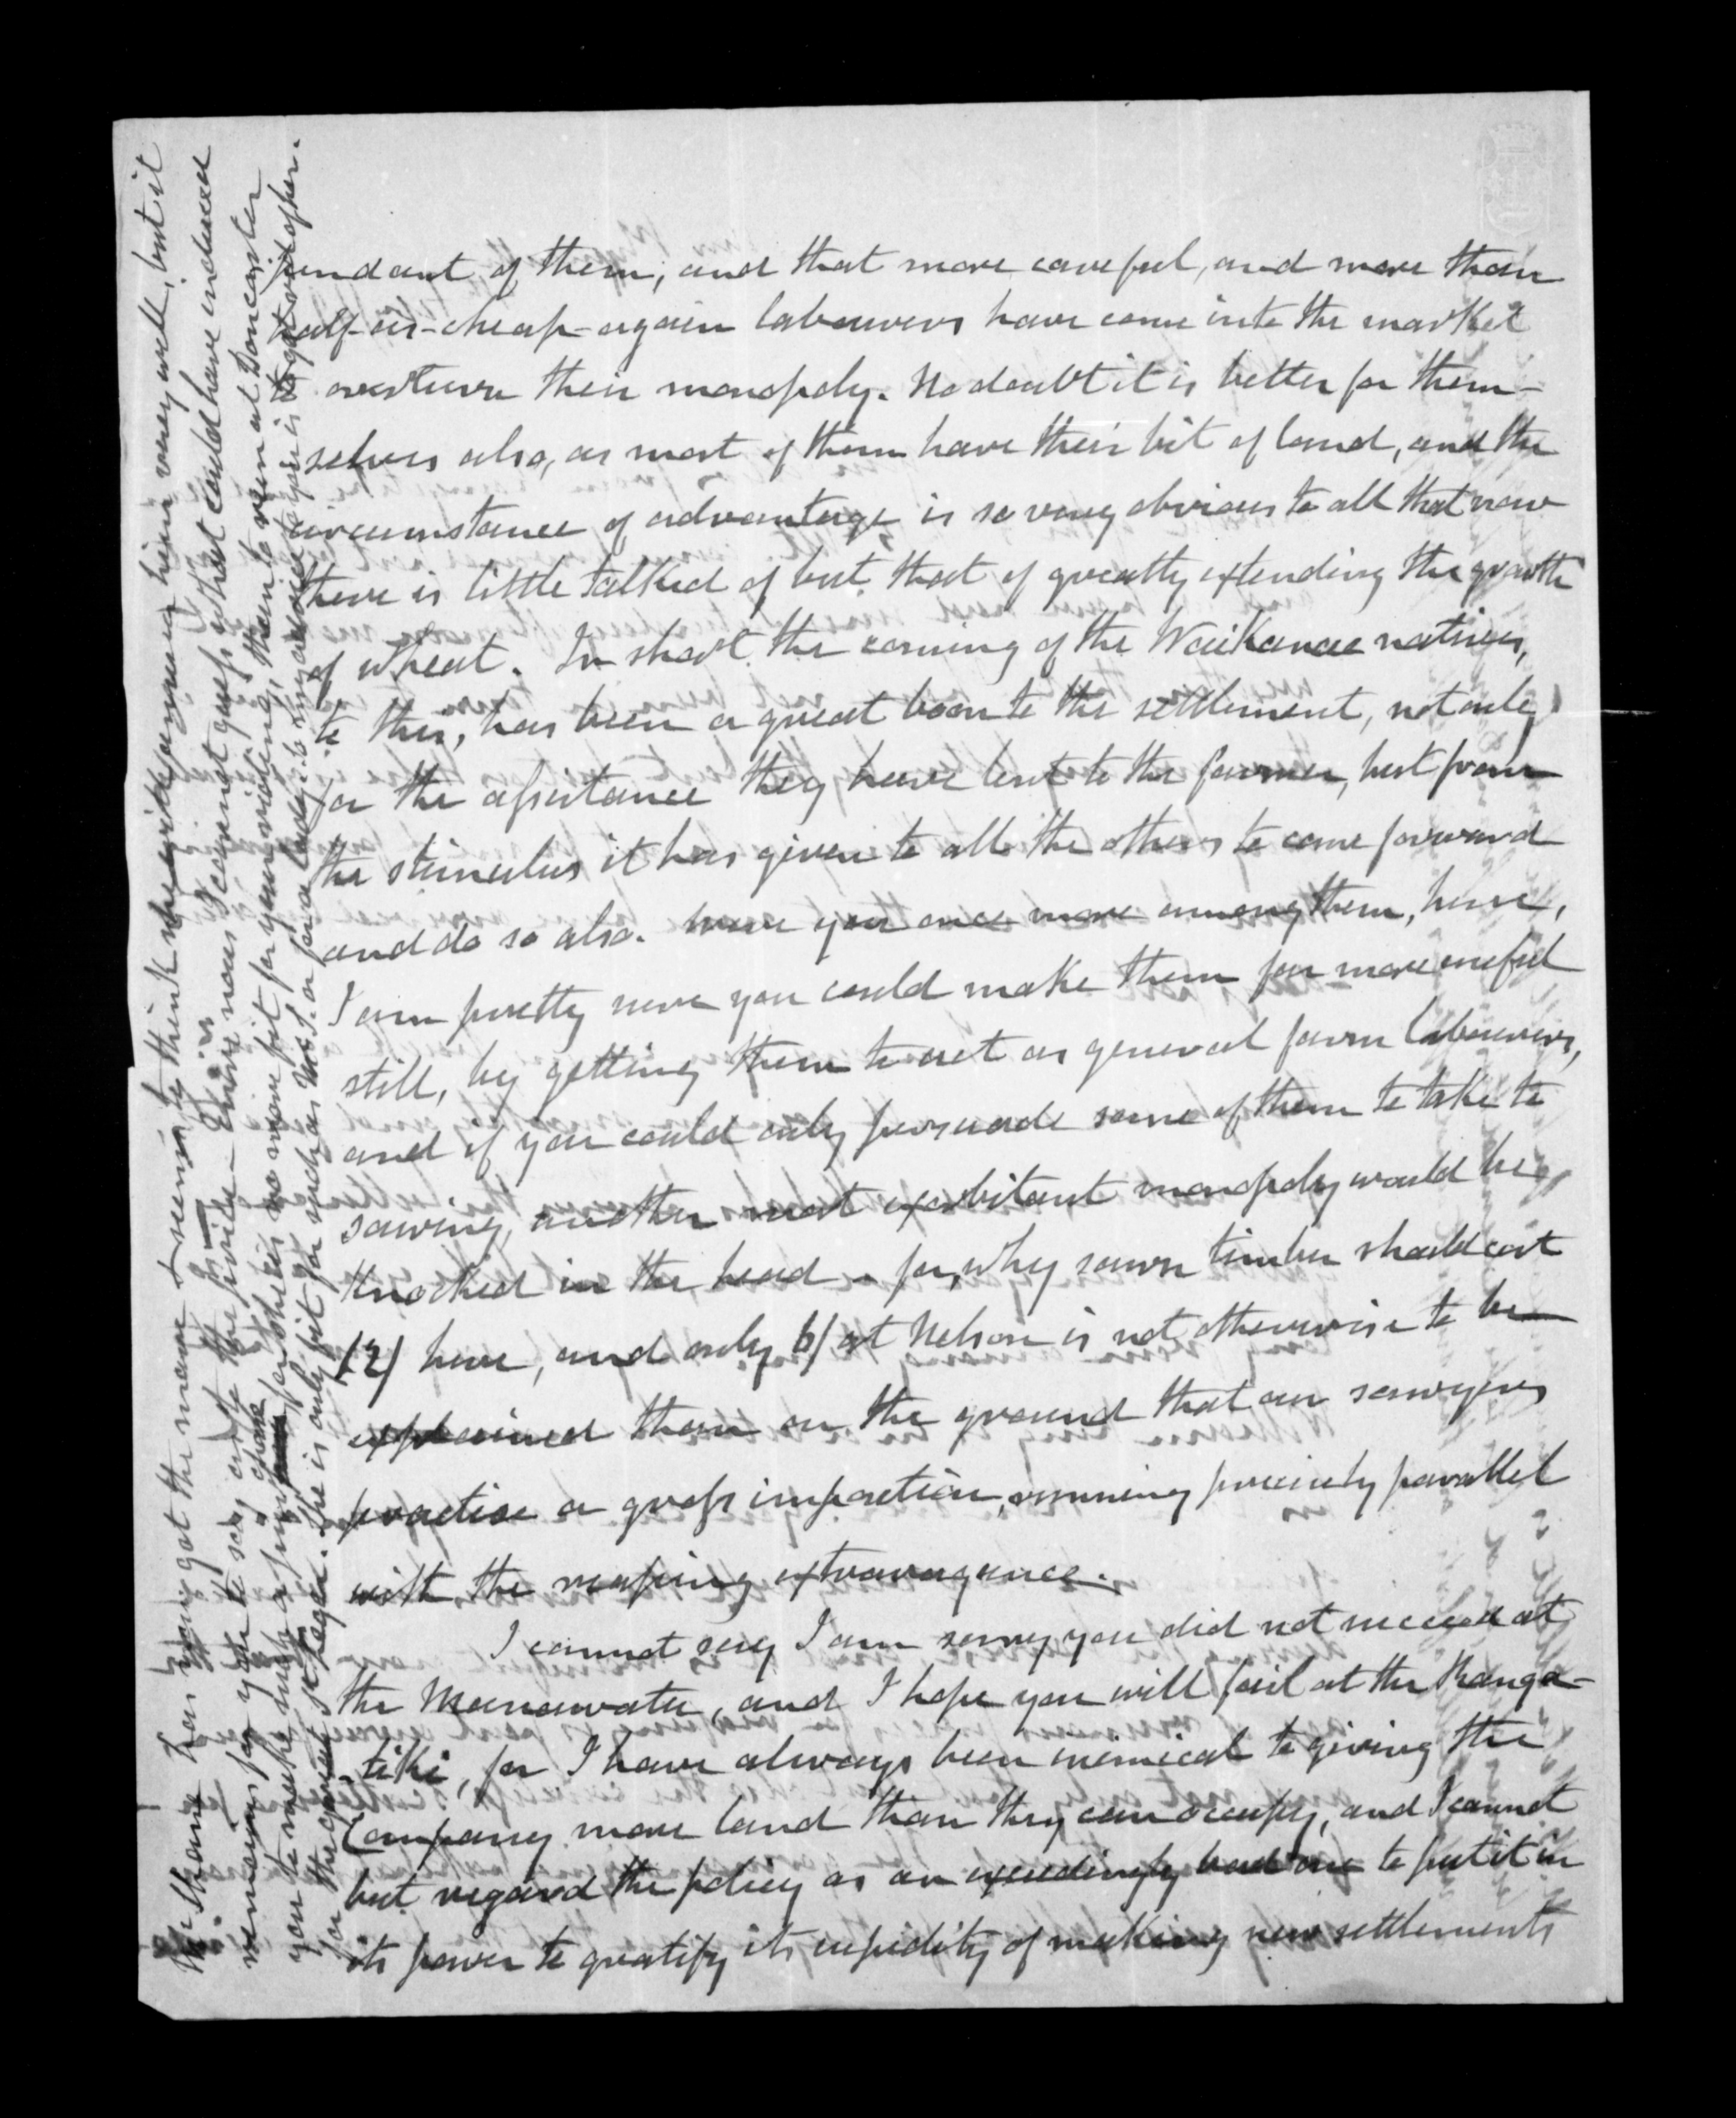 pendant of them, and that more careful, and more than
half-as-cheap-again labourers have come into the market
to overturn their monopoly. No doubt it is better for them-
selves also, as most of them have their bit of land, and the
circumstance of advantage is so very obvious to all that now
there is little talked of but that of greatly extending the growth
of wheat. In short the coming of the Waikanae natives,
to this, has been a great boon to the settlement, not only
for the assistance they have lent to the farmer, but from
the stimulus it has given to all the others to come forward
and do so also. Were you once more among them, here,
I am pretty sure you could make them far more useful
still, by getting them to act as general farm labourers,
and if you could only persuade some of them to take to
sawing, another most exorbitant monopoly would be
knocked in the head - for, why sawn timber should cost
12/ here, and only 6/ at Nelson is not otherwise to be
explained than on the ground that our sawyers
practise a gross imposition, running precisely parallel
with the reaping extravagance.
I cannot say I am sorry you did not succeed at
the Manawatu, and I hope you will fail at the Ranga-
-tiki, for I have always been inimical to giving the
Company more land than they can occupy, and I cannot
but regard the policy as an exceedingly bad one to put it in
its power to gratify its cupidity of making new settlements
McShane has now got the mare & seems to think she will answer him very well, but it
remains for you to say as to the price - Entre nous I cannot guess what could have induced
you to make such a purchase for she is no more fit for your riding, than to run at Doncaster
for the great St Leger. She is only fit for such as Mrs. S. or for a lady & my advice to you is to get rid of her.